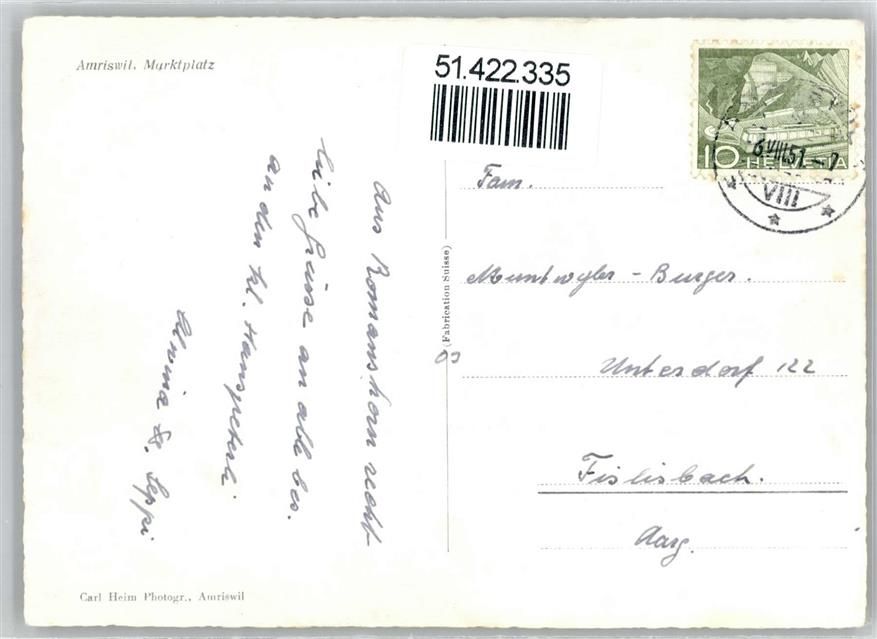 Amriswil. Marktplatz
51.422.335
10 HELVETIA
6.VIII.51.-7
VIII
Aus Romanshorn recht
liebe Grüsse an alle bes.
an den kl. Hanspeterli
Elvina & Seppi
(Fabrication Suisse)
Fam.
Muntwyler - Burger.
Unterdorf 122
Fislisbach.
Aarg.
Carl Heim Photogr., Amriswil